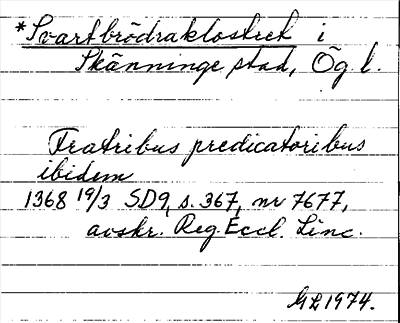 *Svartbrödraklostret i
Skänninge stad, Ög l.
Fratribus predicatoribus
ibidem
1368 19/3 SD9, s. 367, nr 7677,
avskr. Reg. Eccl. Linc.
ML 1974.